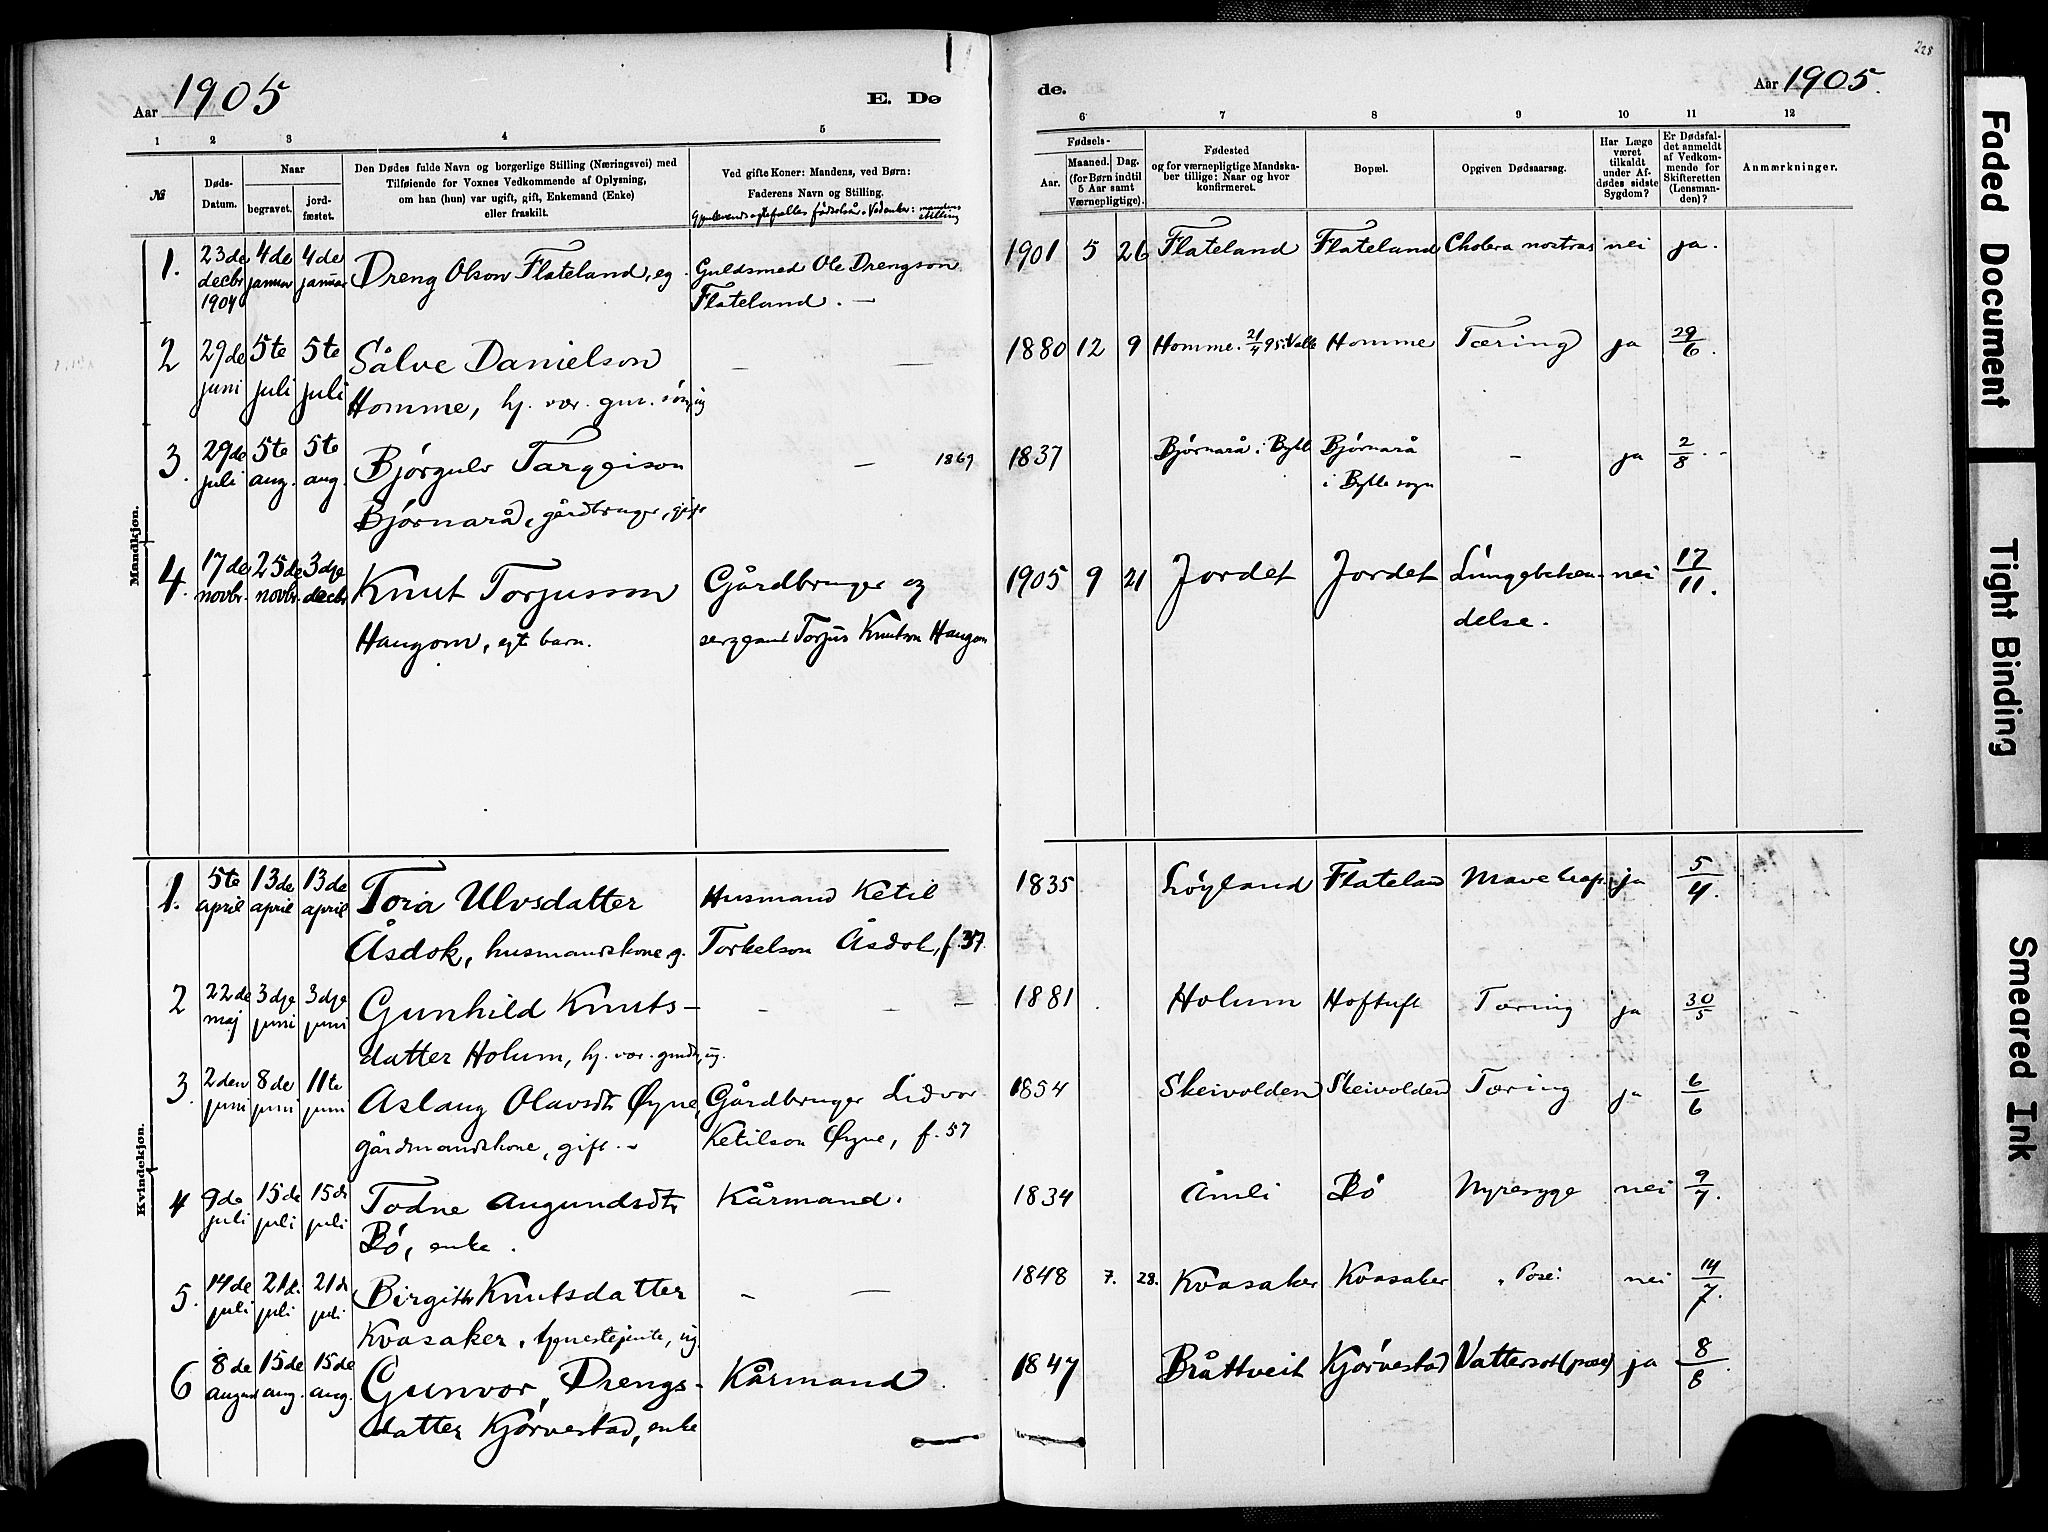 228
Aar 1905
E. Dø
de.
Aar 1905.
1 2 3 4 5 6 7 8 9 10 11 12
№
Døds-
Datum.
Naar
begravet.
jord-
fæstet.
Den Dødes fulde Navn og borgerlige Stilling (Næringsvei) med
Tilføiende for Voxnes Vedkommende af Oplysning,
om han (hun) var ugift, gift, Enkemand (Enke)
eller fraskilt.
Ved gifte Koner: Mandens, ved Børn:
Faderens Navn og Stilling.
Gjenlevende ægtefælles fødselsår. Ved enker: mandens
stilling
Fødsels-
Aar.
Maaned. Dag.
(for Børn indtil
5 Aar samt
Værnepligtige).
Fødested
og for værnepligtige Mandska-
ber tillige: Naar og hvor
konfirmeret.
Bopæl.
Opgiven Dødsaarsag.
Har Læge
været
tilkaldt
under Af-
dødes sidste
Sygdom?
Er Dødsfal-
det anmeldt
af Vedkom-
mende for
Skifteretten
(Lensman-
den)?
Anmærkninger.
Mandkjøn.
1. 23de 4de 4de Dreng Olson Flateland, eg. Guldsmed Ole Drengson 1901 5 26 Flateland Flateland Cholera nostras nei ja.
decbr januar januar Flateland. —
1904
2 29de 5te 5te Sålve Danielson — — 1880 12 9 Homme. 21/4 95. Valle Homme Tæring ja 29/6.
juni juli juli Homme, hj. vær. gm. søn, ug
3. 29de 5te 5te Bjørgulv Targeison — 1869 1837 Bjørnarå i Bykle Bjørnarå - ja 2/8.
juli aug. aug. Bjørnarå, gårdbruger, gift i Bykle sogn
4. 17de 25de 3dje Knut Torjusson Gårdbruger og 1905 9 21 Jordet Jordet Lungebetæn- nei 17/11.
novbr. novbr. decbr Haugom, egt. barn. sergeant Torjus Knutson Haugom delse.
Kvindekjøn.
1. 5te 13de 13de Tora Ulvsdatter Husmand Ketil 1835 Løyland Flateland ja 5/4.
april april april Åsdok, husmandskone g. Torkelson Åsdok, f. 37.
2 22de 3dje 3dje Gunhild Knuts- - - — 1881 Holum Hoftuft Tæring ja 30/5
maj juni juni datter Holum, hj. vær. gmdtr, ug.
3. 2den 8de 11te Aslaug Olavsdtr Øyne, Gårdbruger Lidvor 1854 Skeivolden Skeivolden Tæring ja 6/6
juni juni juni gårdmandskone, gift. - Ketilson Øyne, f. 57
4 9de 15de 15de Todne Augundsdtr Kårmand. 1834 Åmli Bø Nyresyge nei 9/7.
juli juli juli Bø, enke.
5. 14de 21de 21de Birgitte Knutsdatter - — 1848 7. 28. Kvasaker Kvasaker nei 14/7.
juli juli juli Kvasaker, tjenestejente, ug.
6 8de 15de 15de Gunvor Drengs- Kårmand. 1847 Bråttveit Kjørvestad Vattersot (pose) ja 8/8.
august aug. aug. datter Kjørvestad, enke
Faded Document
Tight Binding
Smeared Ink